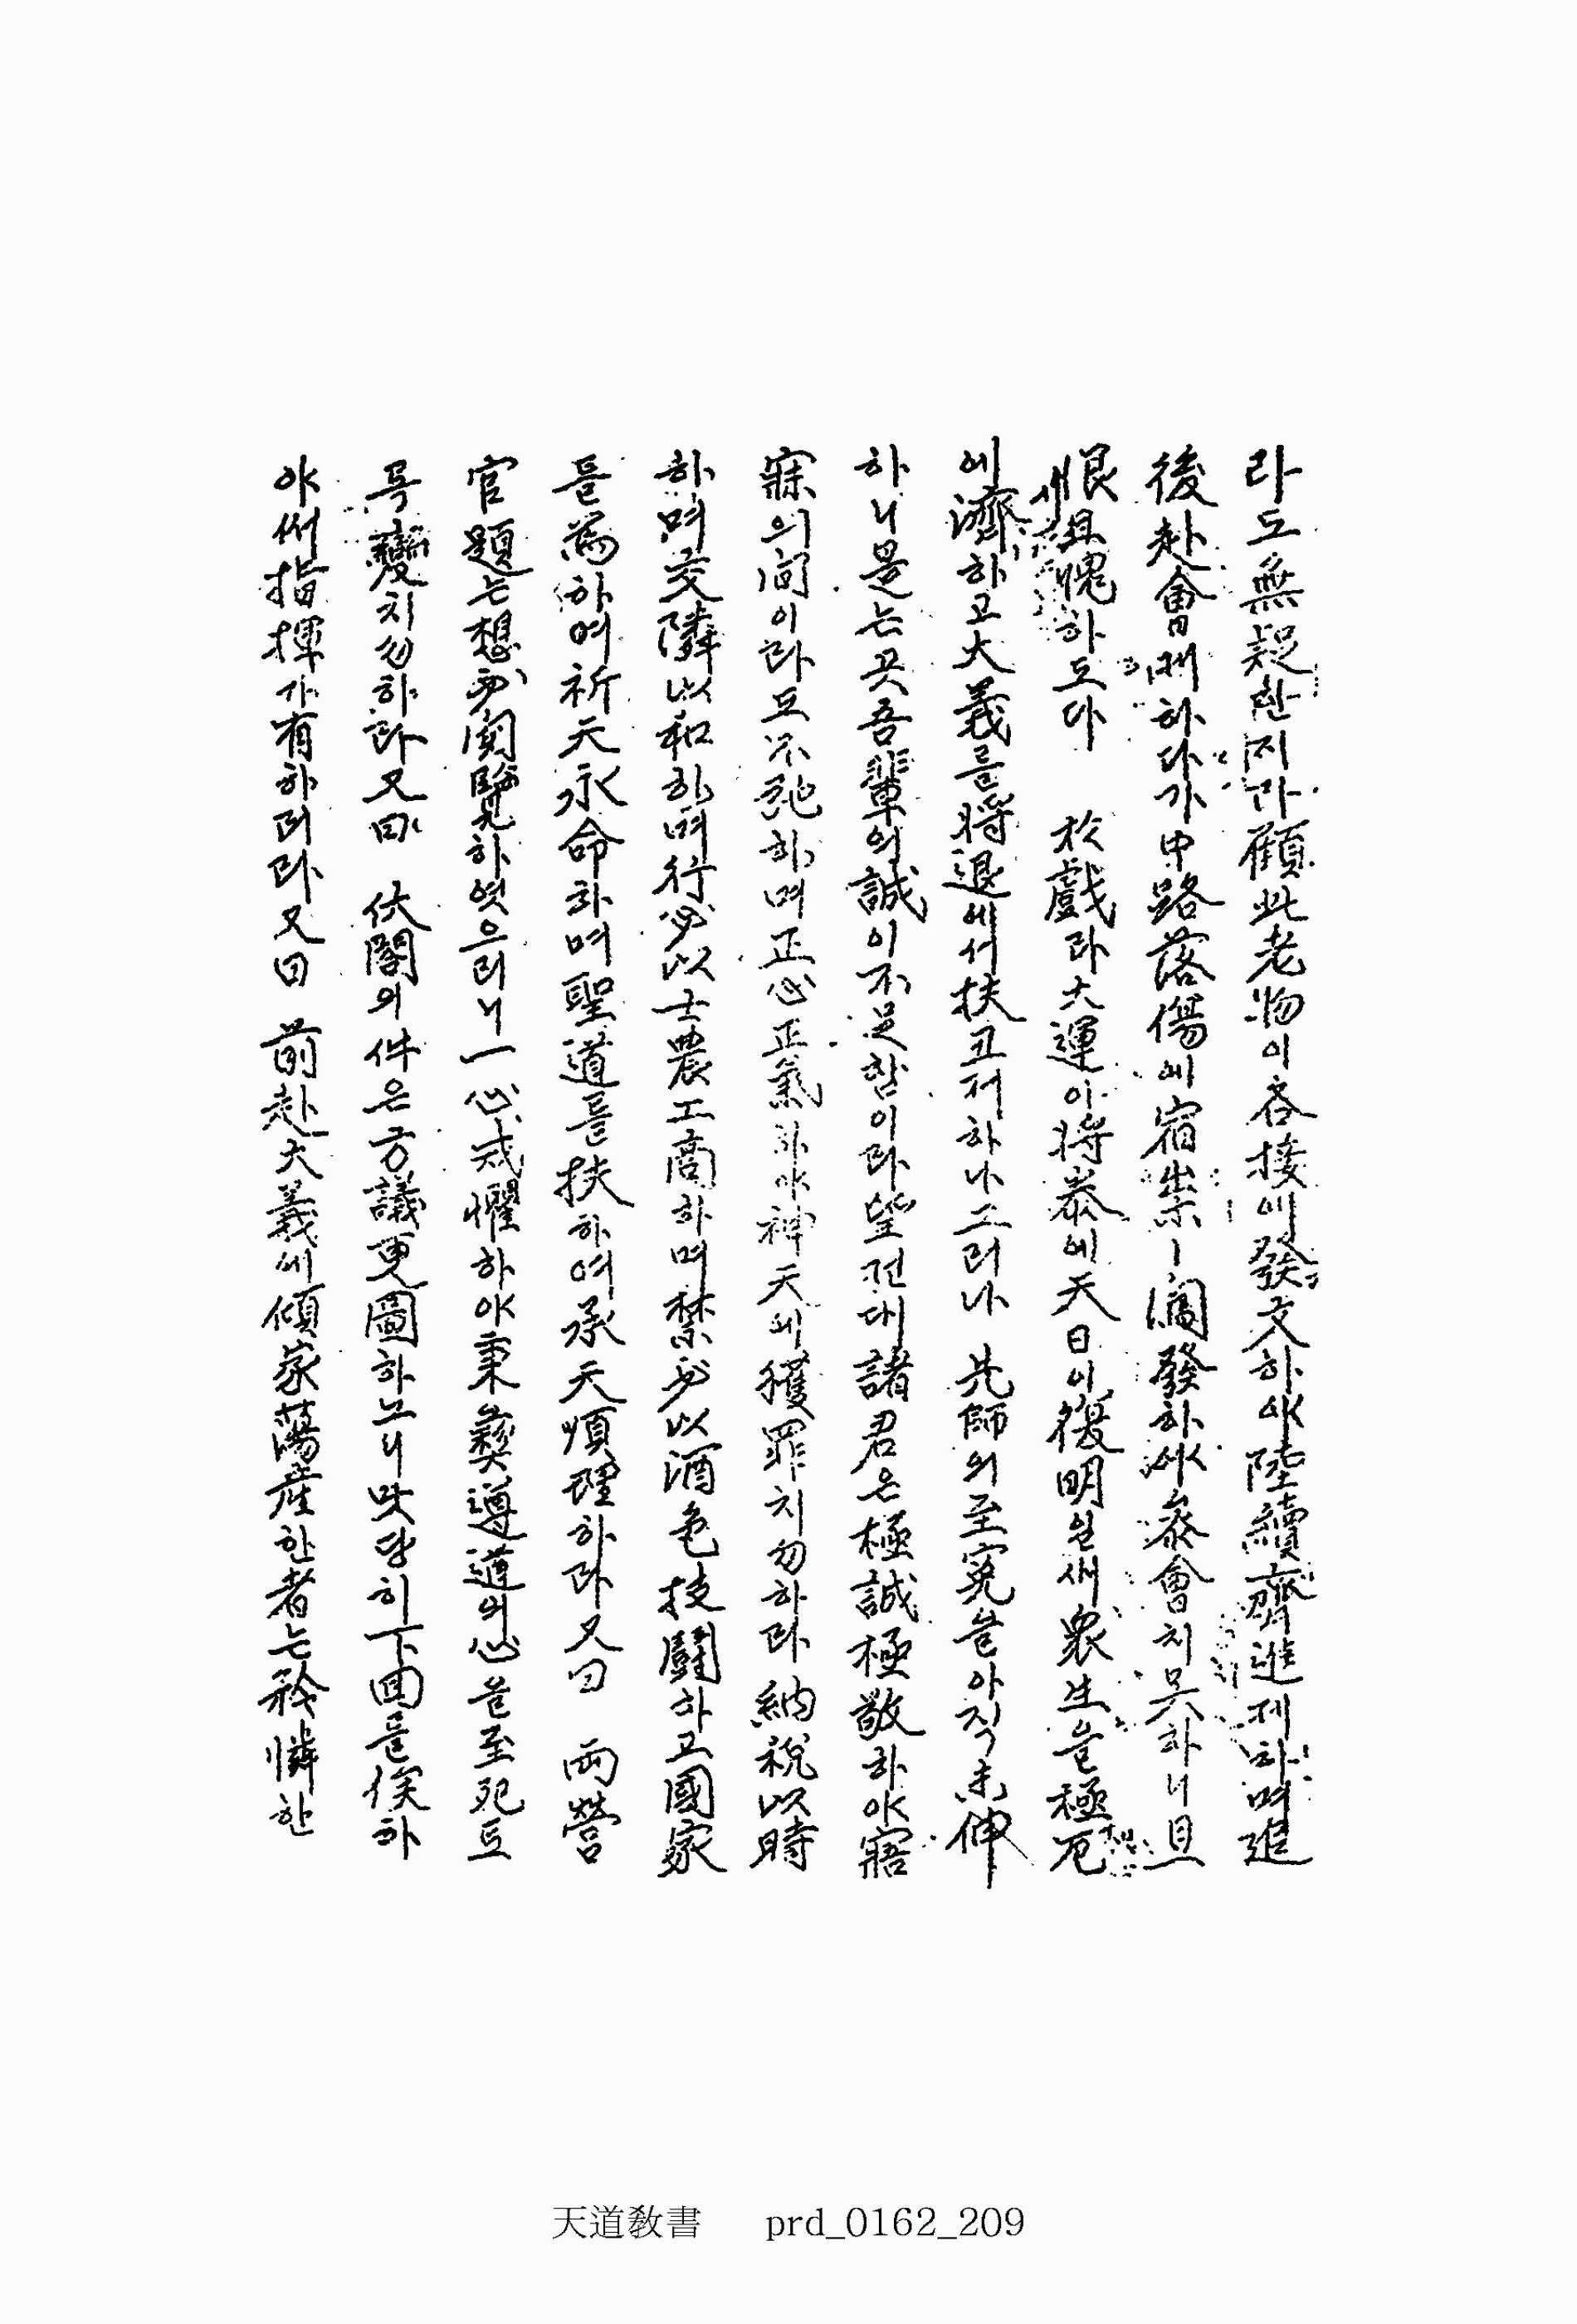 라도無疑한지라顧此老物이各接에發文하야陸續齊進케하며進
後赴會때하다가中路落傷에宿祟ㅣ闖發하야參會치못하니且
恨且愧하도다 於戱라大運이將泰에天日이復明일새衆生을極厄
에濟하고大義를將退에서扶코저하나그러나 先師의至寃을아직未伸
하니是는곳吾輩의誠이不足함이라望컨대諸君은極誠極敬하야寤
寐의間이라도不弛하며正心正氣하야神天에獲罪치勿하라納稅以時
하며交隣以和하며行必以士農工商하며禁必以酒色技鬪하고國家
를爲하여祈天永命하며聖道를扶하여承天順理하라又曰 兩營
官題는想必閱覽하엿으리니一心戒懼하야秉彛遵道의心을至死토
록變치勿하라又曰 伏閤의件은方議更圖하노니맛당히下回를俟하
야써指揮가有하리라又曰 前赴大義에傾家蕩産한者는矜憐한
天道敎書 prd_0162_209